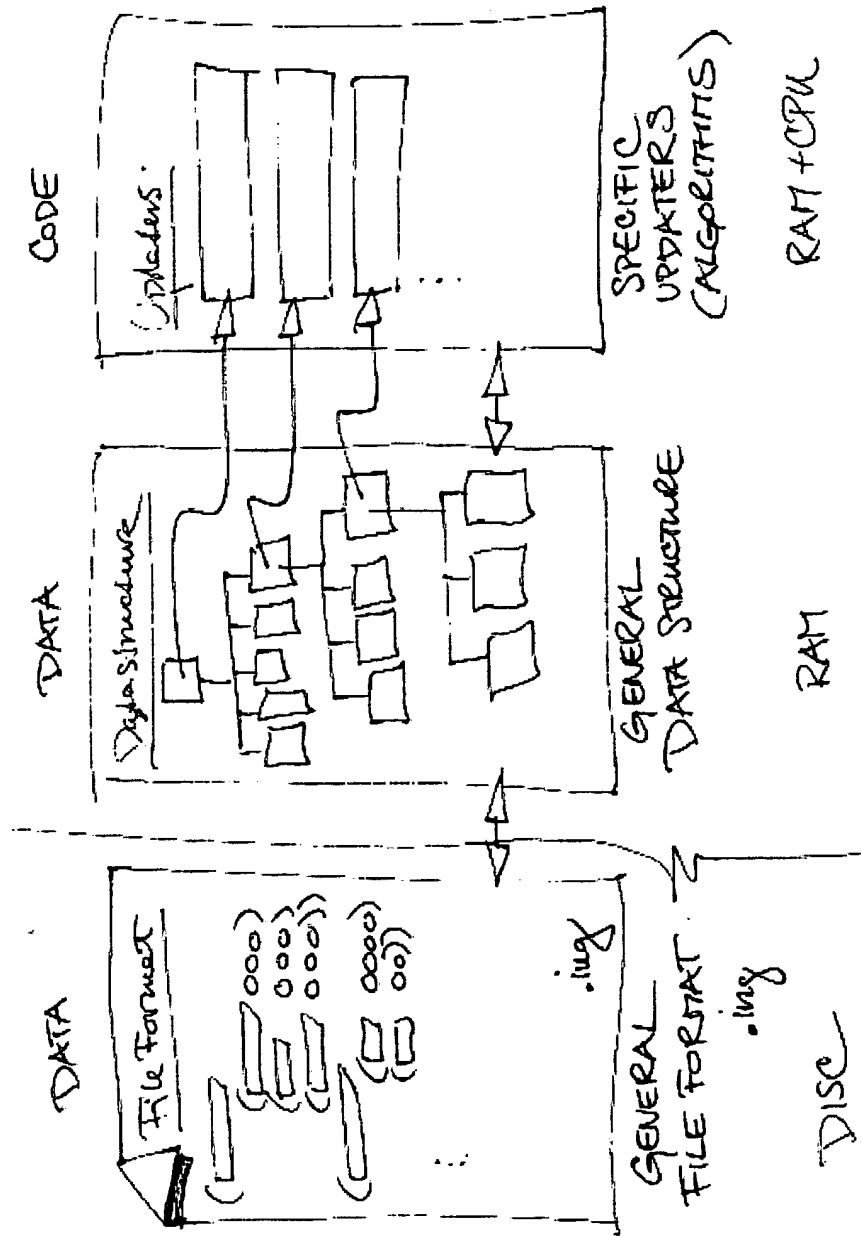 DATA
File Format
( (
( ooo)
( ooo)
( ooo))
(
( oooo)
( oo))
...
.ing
GENERAL
FILE FORMAT
.ing
DISC
DATA
Data Structure
GENERAL
DATA STRUCTURE
RAM
CODE
Updaters.
...
SPECIFIC
UPDATERS
(ALGORITHMS)
RAM + CPU